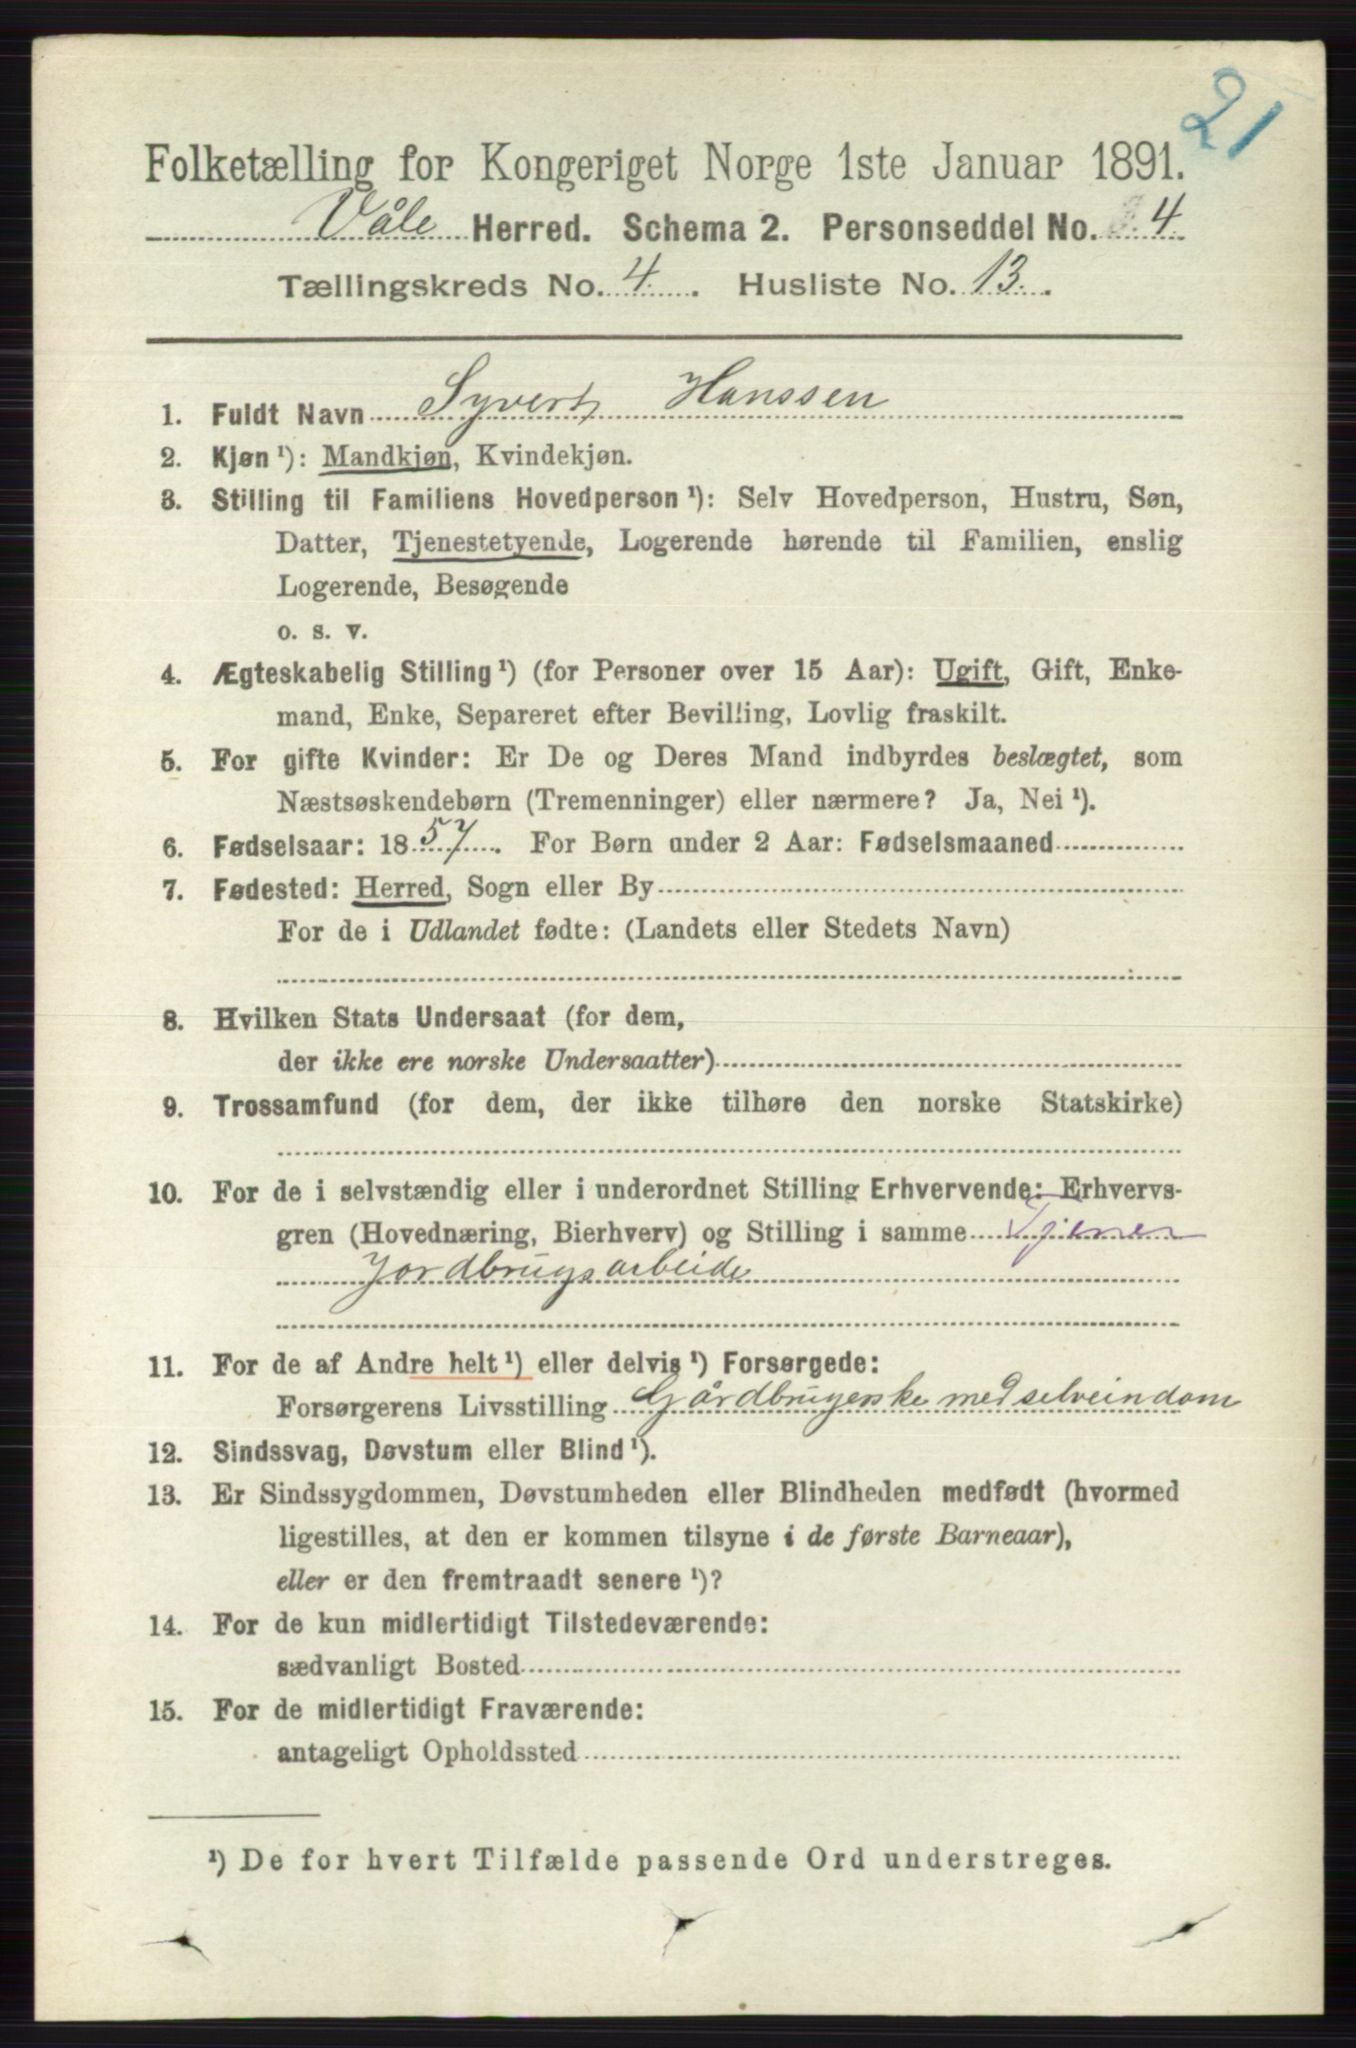 21
Folketælling for Kongeriget Norge 1ste Januar 1891.
Våle Herred. Schema 2. Personseddel No. 4.
Tællingskreds No. 4. Husliste No. 13.
1. Fuldt Navn Syvert Hanssen
2. Kjøn ¹): Mandkjøn, Kvindekjøn.
3. Stilling til Familiens Hovedperson ¹): Selv Hovedperson, Hustru, Søn,
Datter, Tjenestetyende, Logerende hørende til Familien, enslig
Logerende, Besøgende
o. s. v.
4. Ægteskabelig Stilling ¹) (for Personer over 15 Aar): Ugift, Gift, Enke-
mand, Enke, Separeret efter Bevilling, Lovlig fraskilt.
5. For gifte Kvinder: Er De og Deres Mand indbyrdes beslægtet, som
Næstsøskendebørn (Tremenninger) eller nærmere? Ja, Nei ¹).
6. Fødselsaar: 1857. For Børn under 2 Aar: Fødselsmaaned
7. Fødested: Herred, Sogn eller By
For de i Udlandet fødte: (Landets eller Stedets Navn)
8. Hvilken Stats Undersaat (for dem,
der ikke ere norske Undersaatter)
9. Trossamfund (for dem, der ikke tilhøre den norske Statskirke)
10. For de i selvstændig eller i underordnet Stilling Erhvervende: Erhvervs-
gren (Hovednæring, Bierhverv) og Stilling i samme Tjener
Jordbrugsarbeide
11. For de af Andre helt ¹) eller delvis ¹) Forsørgede:
Forsørgerens Livsstilling Gårdbrugerske med selveindom
12. Sindssvag, Døvstum eller Blind ¹).
13. Er Sindssygdommen, Døvstumheden eller Blindheden medfødt (hvormed
ligestilles, at den er kommen tilsyne i de første Barneaar),
eller er den fremtraadt senere ¹)?
14. For de kun midlertidigt Tilstedeværende:
sædvanligt Bosted
15. For de midlertidigt Fraværende:
antageligt Opholdssted
¹) De for hvert Tilfælde passende Ord understreges.